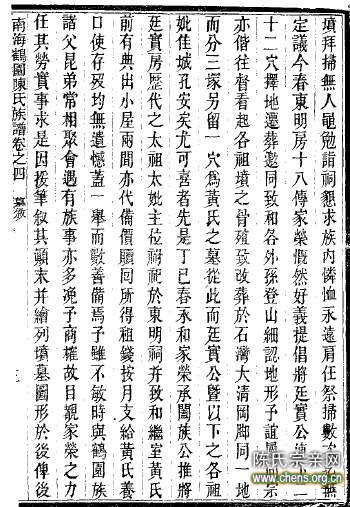 墳拜掃無人黽勉請祠懇求族內憐恤永遠肩任祭掃數無
定議今春東明房十八傳家榮慨然好義提倡將廷實公二
十二穴擇地遷葬邀同致和各外孫登山細認地形予誼屬宗
亦偕往督看起各祖墳之骨殖致改葬於石灣大清岡脚同一地
而分三冢另留一穴爲黃氏之墓從此而廷實公暨以下之各祖
妣佳城孔安矣尤可喜者先是丁巳春永和家榮承闔族公推將
廷實房歷代之太祖太妣主位祔祀於東明祠幷致和繼室黃氏
前有典出小屋兩間亦代備價贖回所得租錢按月支給黃氏養
口使存歿均無遺憾蓋一舉而數善備焉予雖不敏時與鶴園族
諸父昆弟常相聚會遇有族事亦多凂予商榷故目覩家榮之力
任其勞實事求是因援筆叙其顛末幷繪列墳墓圖形於後俾後
南海鶴園陳氏族譜卷之四 墓
陈氏宗亲网
www.chens.org.cn